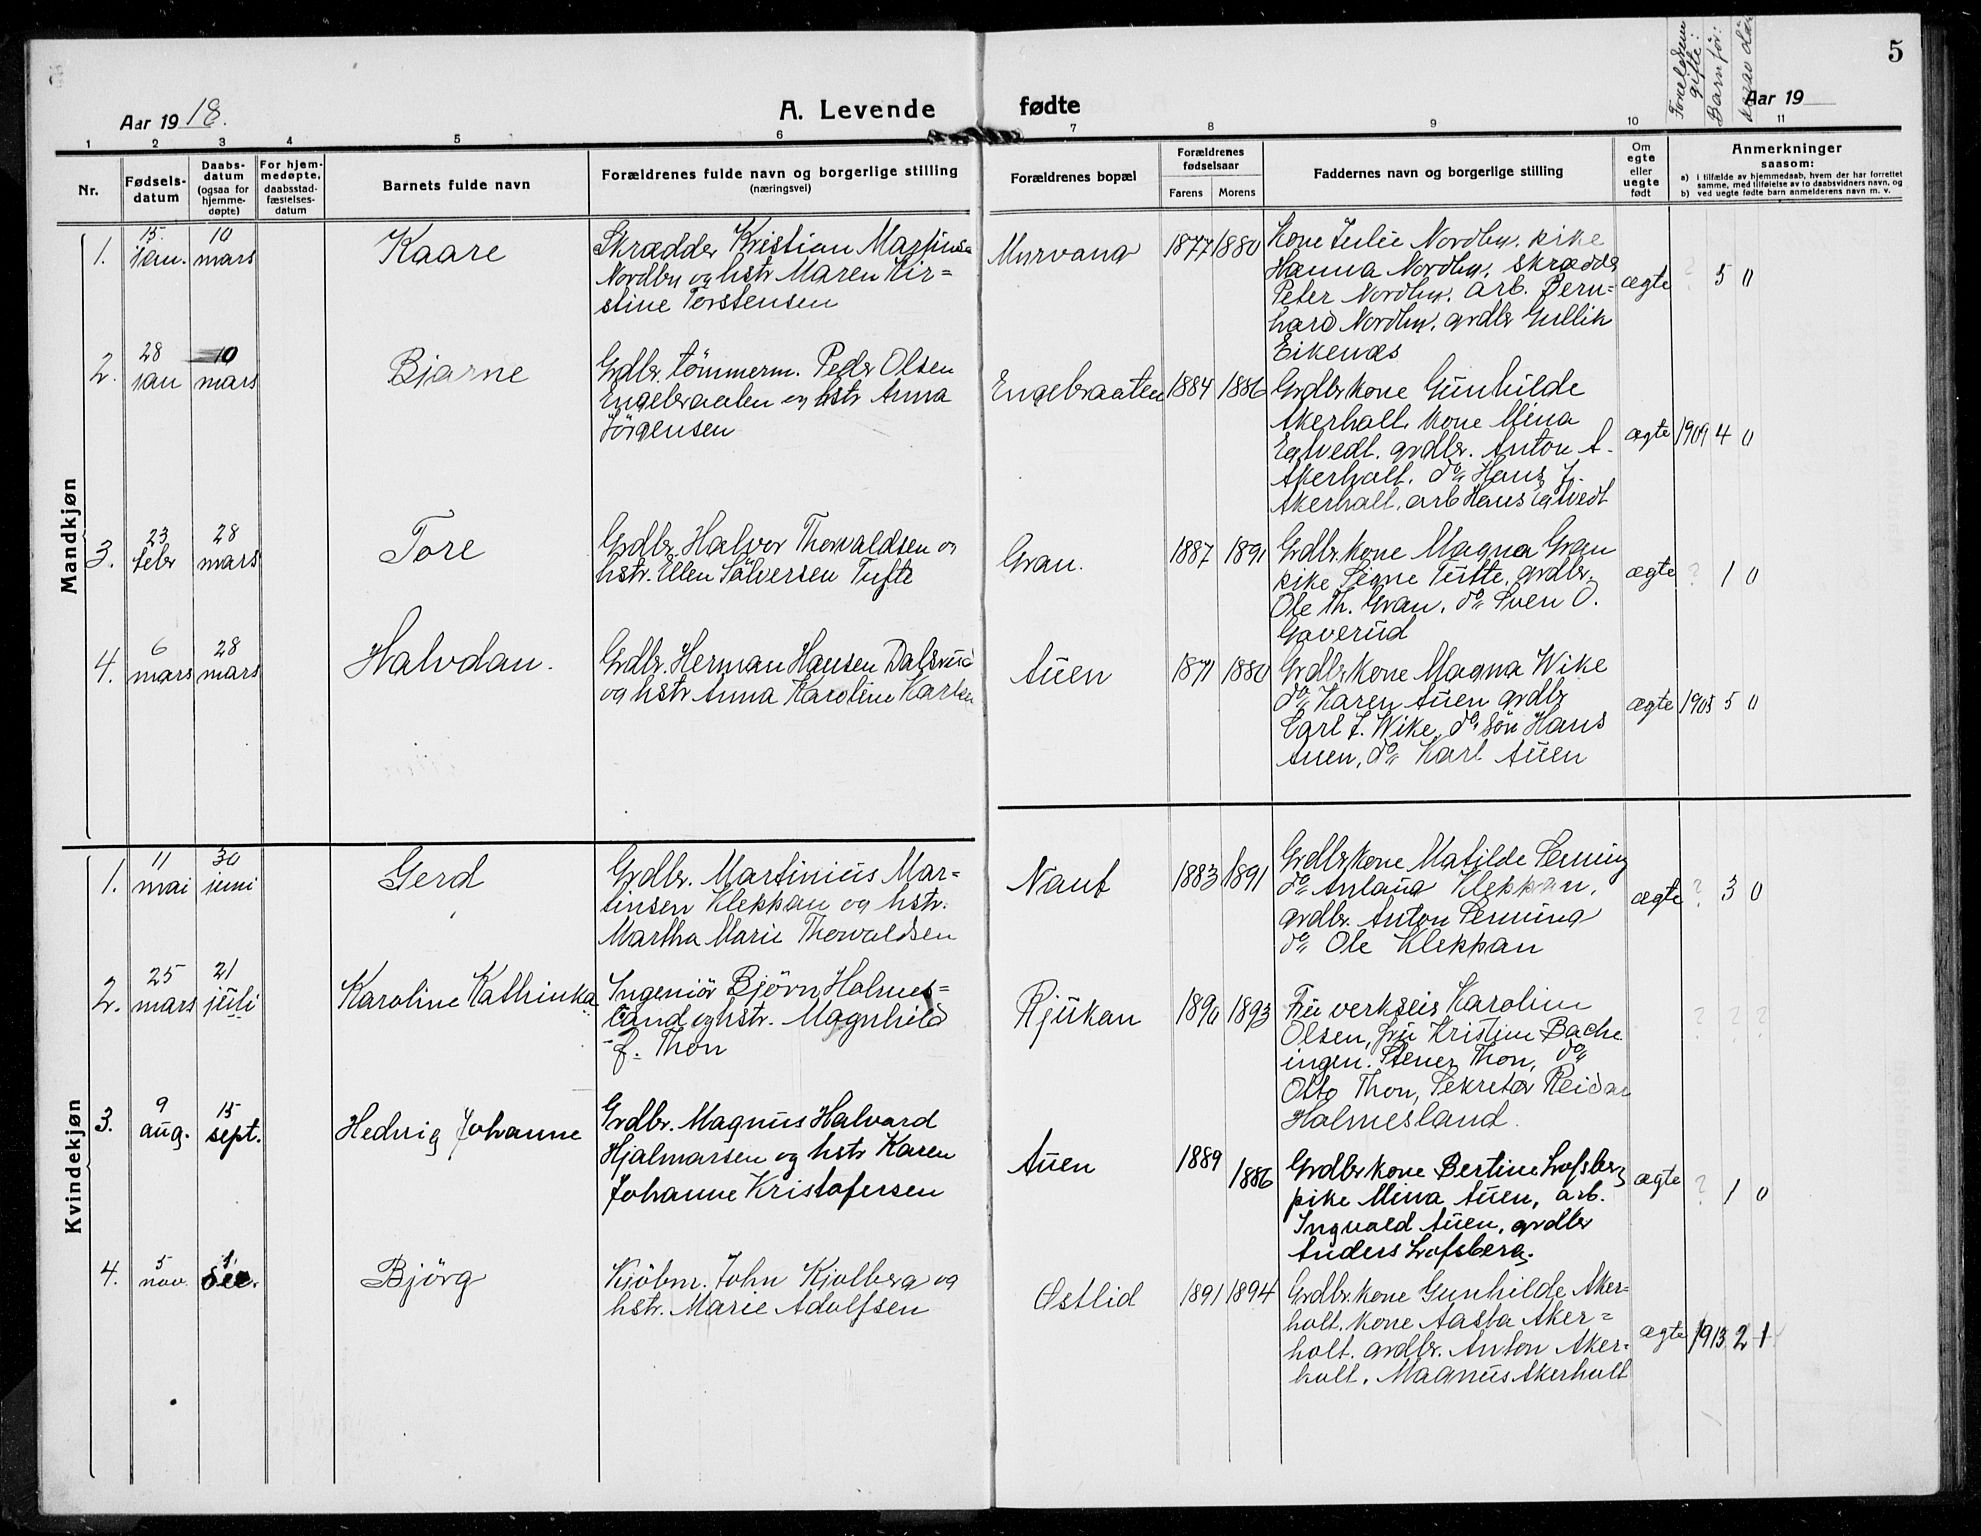 5
Forældrene gifte:
Barn før:
Aar 1918.
A. Levende fødte
Aar 19
1 2 3 4 5 6 7 8 9 10 11
Nr.
Fødsels-
datum
Daabs-
datum
(ogsaa for
hjemme-
døpte)
For hjem-
medøpte,
daabsstad-
fæstelses-
datum
Barnets fulde navn
Forældrenes fulde navn og borgerlige stilling
(næringsvei)
Forældrenes bopæl
Forældrenes
fødselsaar
Farens Morens
Faddernes navn og borgerlige stilling
Om
egte
eller
uegte
født
Anmerkninger
saasom:
a) i tilfælde av hjemmedaab, hvem der har forrettet
samme, med tilføielse av to daabsvidners navn, og
b) ved uegte fødte barn anmelderens navn m. v.
Mandkjøn
1.
15.
jan.
10
mars
Kaare
Skrædder Kristian Martinsen
Nordby og hstr Maren Kir=
stine Torstensen
Murvang
1877 1880
Kone Julie Nordby. pike
Hanna Nordby. skrædder
Peter Nordby. arb. Bern=
hard Nordby. grdbr Gullik
Eikenæs
ægte
? 5 0
2.
28
jan
10
mars
Bjarne
Grdbr. tømmerm. Peder Olsen
Engebraaten og hstr Anna
Jörgensen
Engebraaten
1884 1886
Grdbrkone Gunhilde
Akerholt. kone Mina
Egtvedt. grdbr. Anton A.
Akerholt. do Hans J.
Akerholt. arb Hans Egtvedt
ægte
1909 4 0
3.
23
febr
28
mars
Tore
Grdbr. Halvor Thorvaldsen og
hstr. Ellen Sälversen Tufte
Gran.
1887 1891
Grdbr.kone Magna Gran
pike Signe Tufte. grdbr.
Ole Th. Gran. do Sven O.
Goverud
ægte
? 1 0
4.
6
mars
28
mars
Halvdan.
Grdbr. Herman Hansen Dalsrud
og hstr Anna Karoline Karlsen
Auen
1871 1880
Grdbrkone Magna Wike
do Karen Auen grdbr
Carl J. Wike. do søn Hans
Auen, do Karl Auen
ægte
1905 5 0
Kvindekjøn
1.
11
mai
30
juni
Gerd
Grdbr. Martinius Mar=
tinsen Kleppan og hstr.
Martha Marie Thorvaldsen
Nauf
1883 1891
Grdbrkone Matilde Semming
do Aslaug Kleppan,
grdbr. Anton Semming
do Ole Kleppan
ægte
? 3 0
2.
25
mars
21
juli
Karoline Kathinka
Ingeniör Bjørn Holmes=
land og hstr. Magnhild
f. Thon
Rjukan
1890 1893
Fru verkseis Karoline
Olsen, fru Kristine Bache
ingen. Stener Thon, do
Otto Thon, Sekretær Reidar
Holmesland.
? ? ?
3.
9
aug.
15
sept.
Hedvig Johanne
Grdbr. Magnus Halvard
Hjalmarsen og hstr Karen
Johanne Kristofersen
Auen
1889 1886
Grdbrkone Bertine Lofsberg
pike Mina Auen, arb.
Ingvald Auen, grdbr
Anders Lofsberg.
ægte
? 1 0
4.
5
nov.
1.
dec.
Bjørg
Kjöbm. John Kjolberg og
hstr. Marie Adolfsen
Østlid
1891 1894
Grdbr.kone Gunhilde Aker=
holt. kone Aasta Aker=
holt. grdbr. Anton Aker=
holt. Magnus Akerholt
ægte
1913 2 1